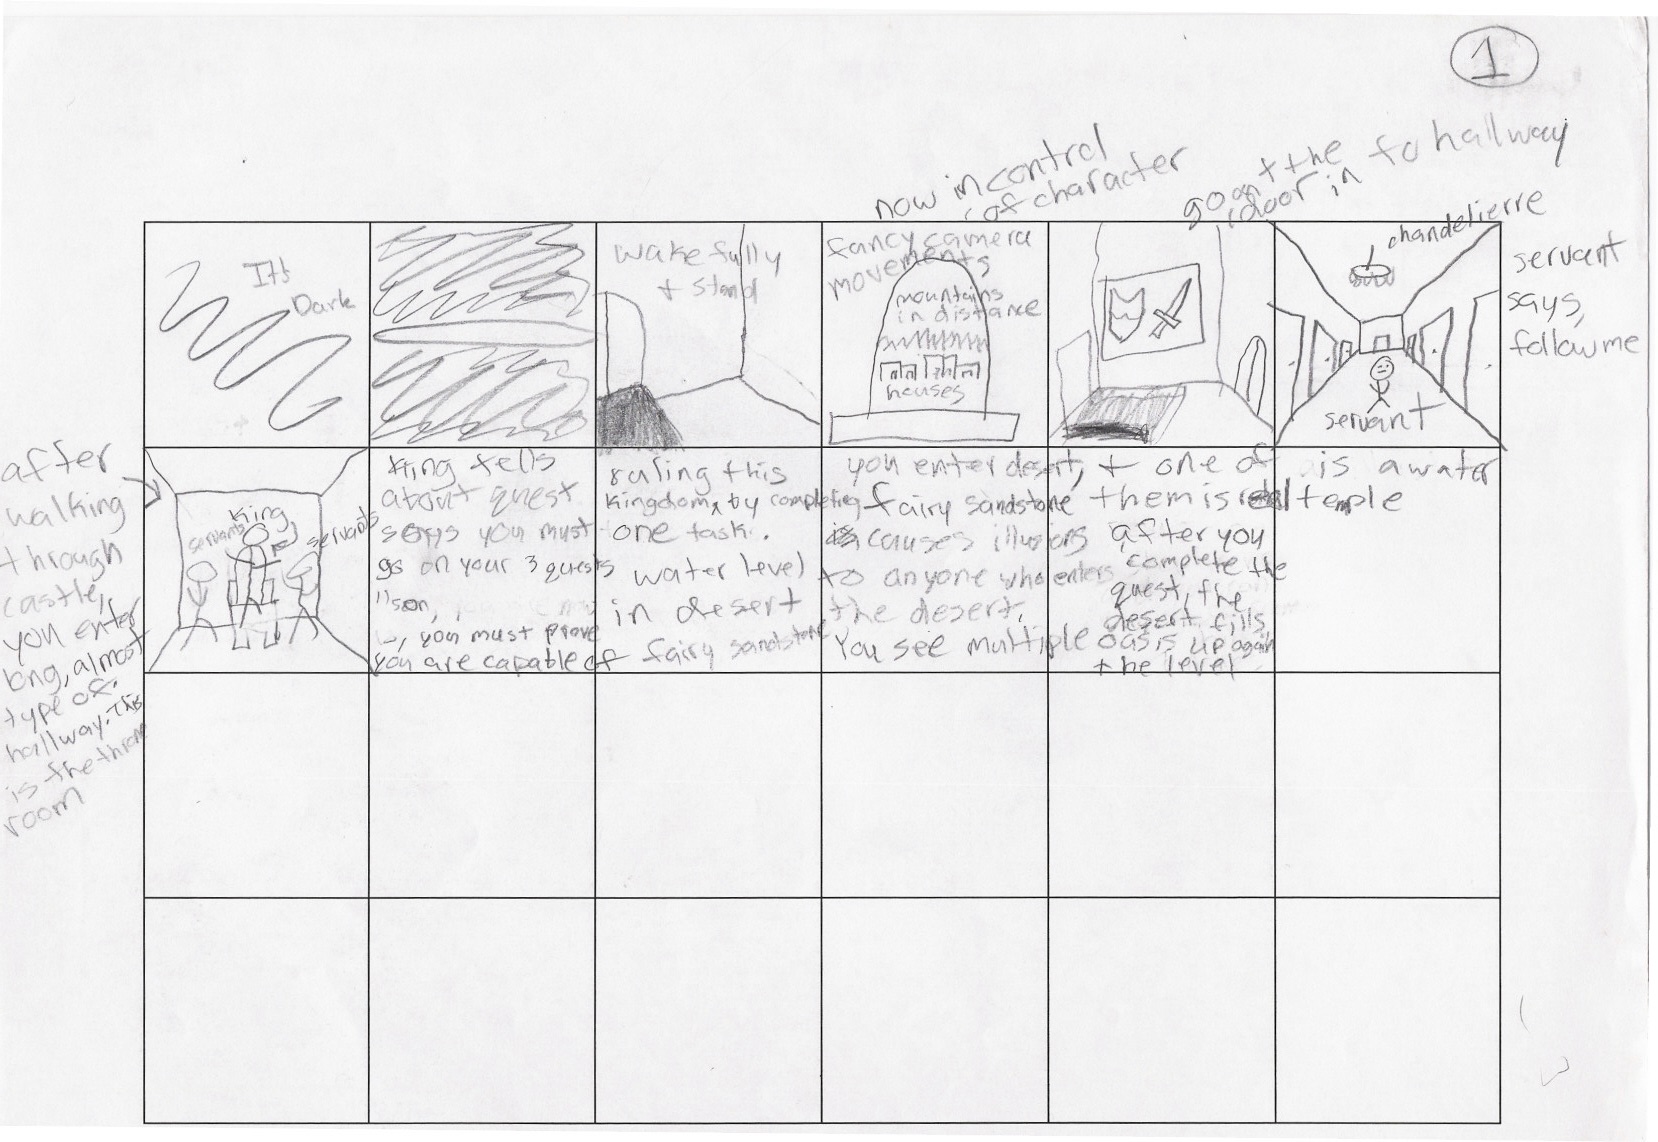 1
now in control
of character
go out the
door in to hallway
It's
Dark
wake fully
+ stand
fancy camera
movements
mountains
in distance
houses
chandelierre
servant
servant
says,
follow me
after
walking
through
castle,
you enter
long, almost
type of
hallway. This
is the throne
room
king
servants
servants
King tells
about quest
says you must
go on your 3 quests
"son,
you must prove
you are capable of
ruling this
kingdom, by completing
one task.
water level
in desert
fairy sandstone
you enter desert,
fairy sandstone
causes illusions
to anyone who enters
the desert.
You see multiple oasis
+ one of
them is real
after you
complete the
quest, the
desert fills
up again
the level
is a water
temple